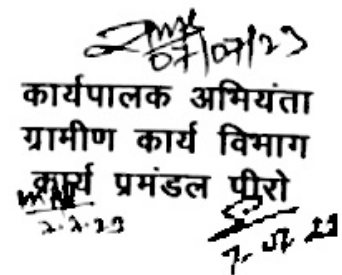 07/07/23
कार्यपालक अभियंता
ग्रामीण कार्य विभाग
कार्य प्रमंडल पीरो
7.07.23